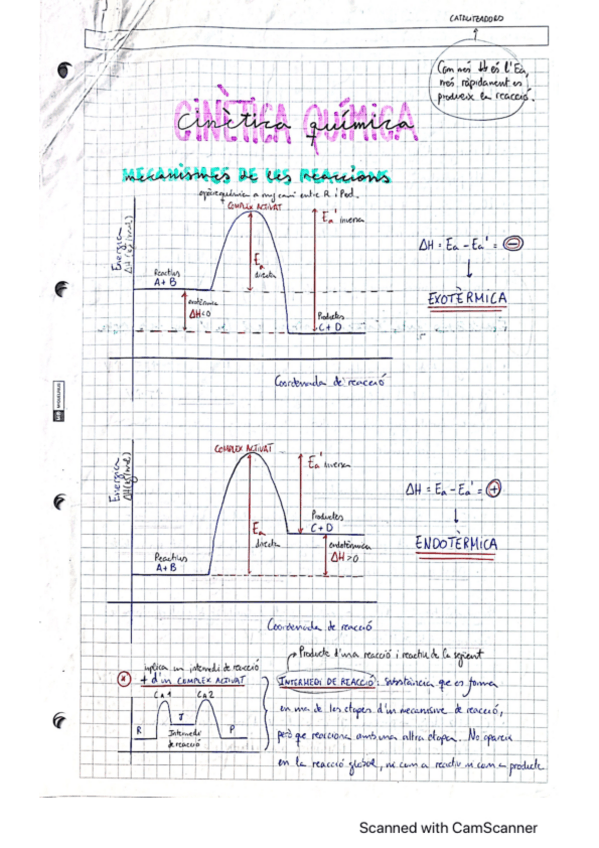 CATALITZADORS
Com més ↓ és l'Ea,
més ràpidament es
produeix la reacció.
CINÈTICA QUÍMICA
Cinètica química
mecanismes de les reaccions
entre R i Prod.
COMPLEX ACTIVAT
Energia
ΔH (kJ/mol)
Ea' inversa
Ea
directa
ΔH = Ea - Ea' = ⊖
EXOTÈRMICA
Reactius
A + B
exotèrmica
ΔH<0
Productes
C + D
Coordenada de reacció
COMPLEX ACTIVAT
Energia
ΔH (kJ/mol)
Ea' inversa
Ea
directa
ΔH = Ea - Ea' = ⊕
ENDOTÈRMICA
Productes
C + D
endotèrmica
ΔH>0
Reactius
A + B
Coordenada de reacció
Producte d'una reacció i reactiu de la següent
implica un intermedi de reacció
+ d'un COMPLEX ACTIVAT
CA1 CA2
R I P
Intermedi
de reacció
INTERMEDI DE REACCIÓ: Substància que es forma
en una de les etapes d'un mecanisme de reacció,
però que reacciona amb una altra etapa. No apareix
en la reacció global, ni com a reactiu ni com a producte
Scanned with CamScanner